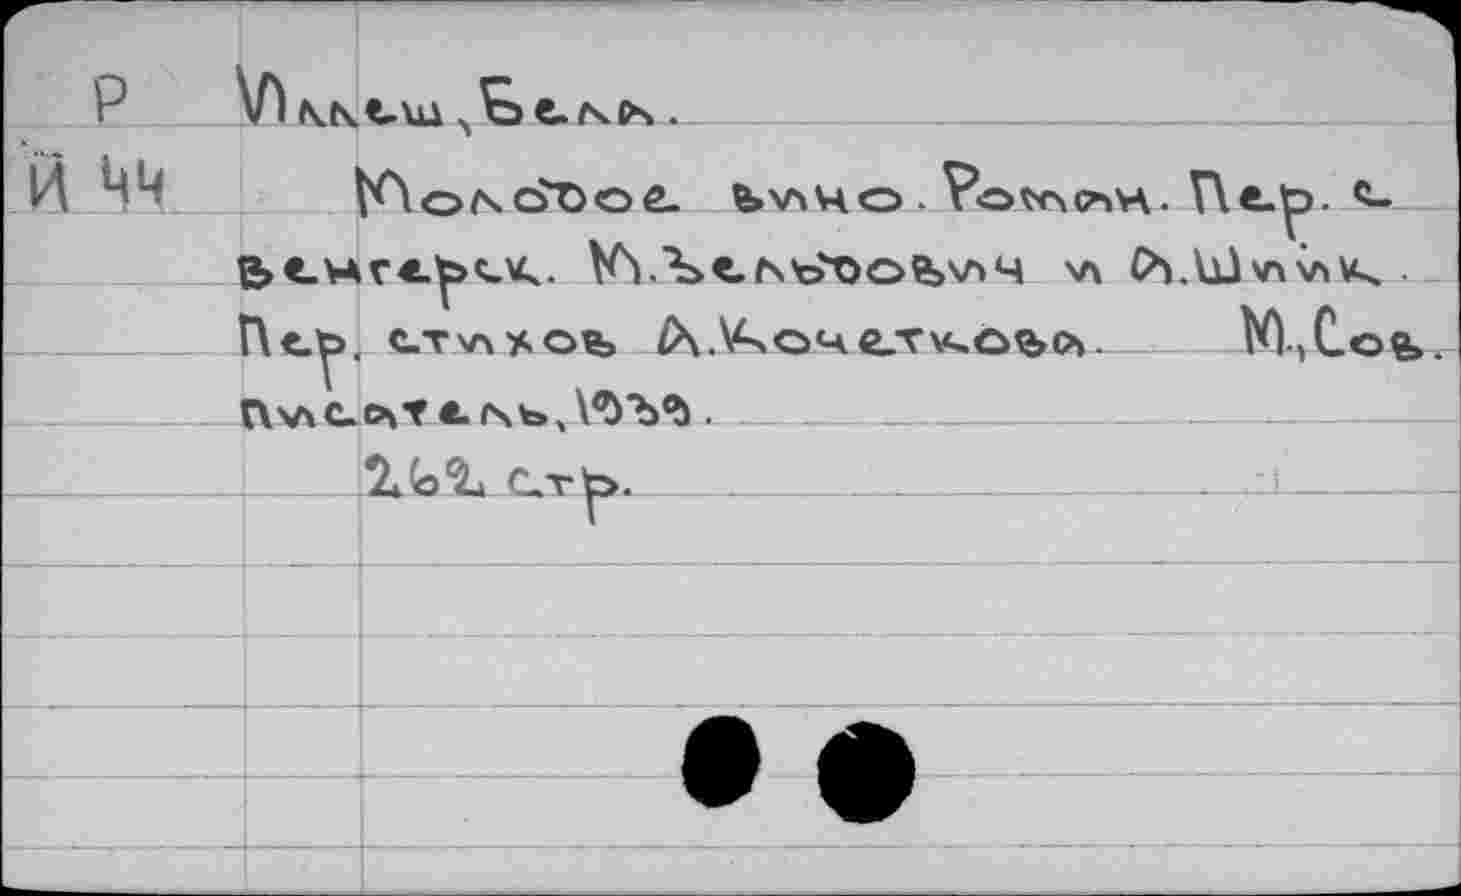 Р Иллеш, Бела.
Й 44 Молодое вино. Роман. Пер. с
венгерск. И.Бельдович и А.Шиик.
Пер. стихов А.Кочеткова. М., Сов.
писатель, 1939.
262 стр.